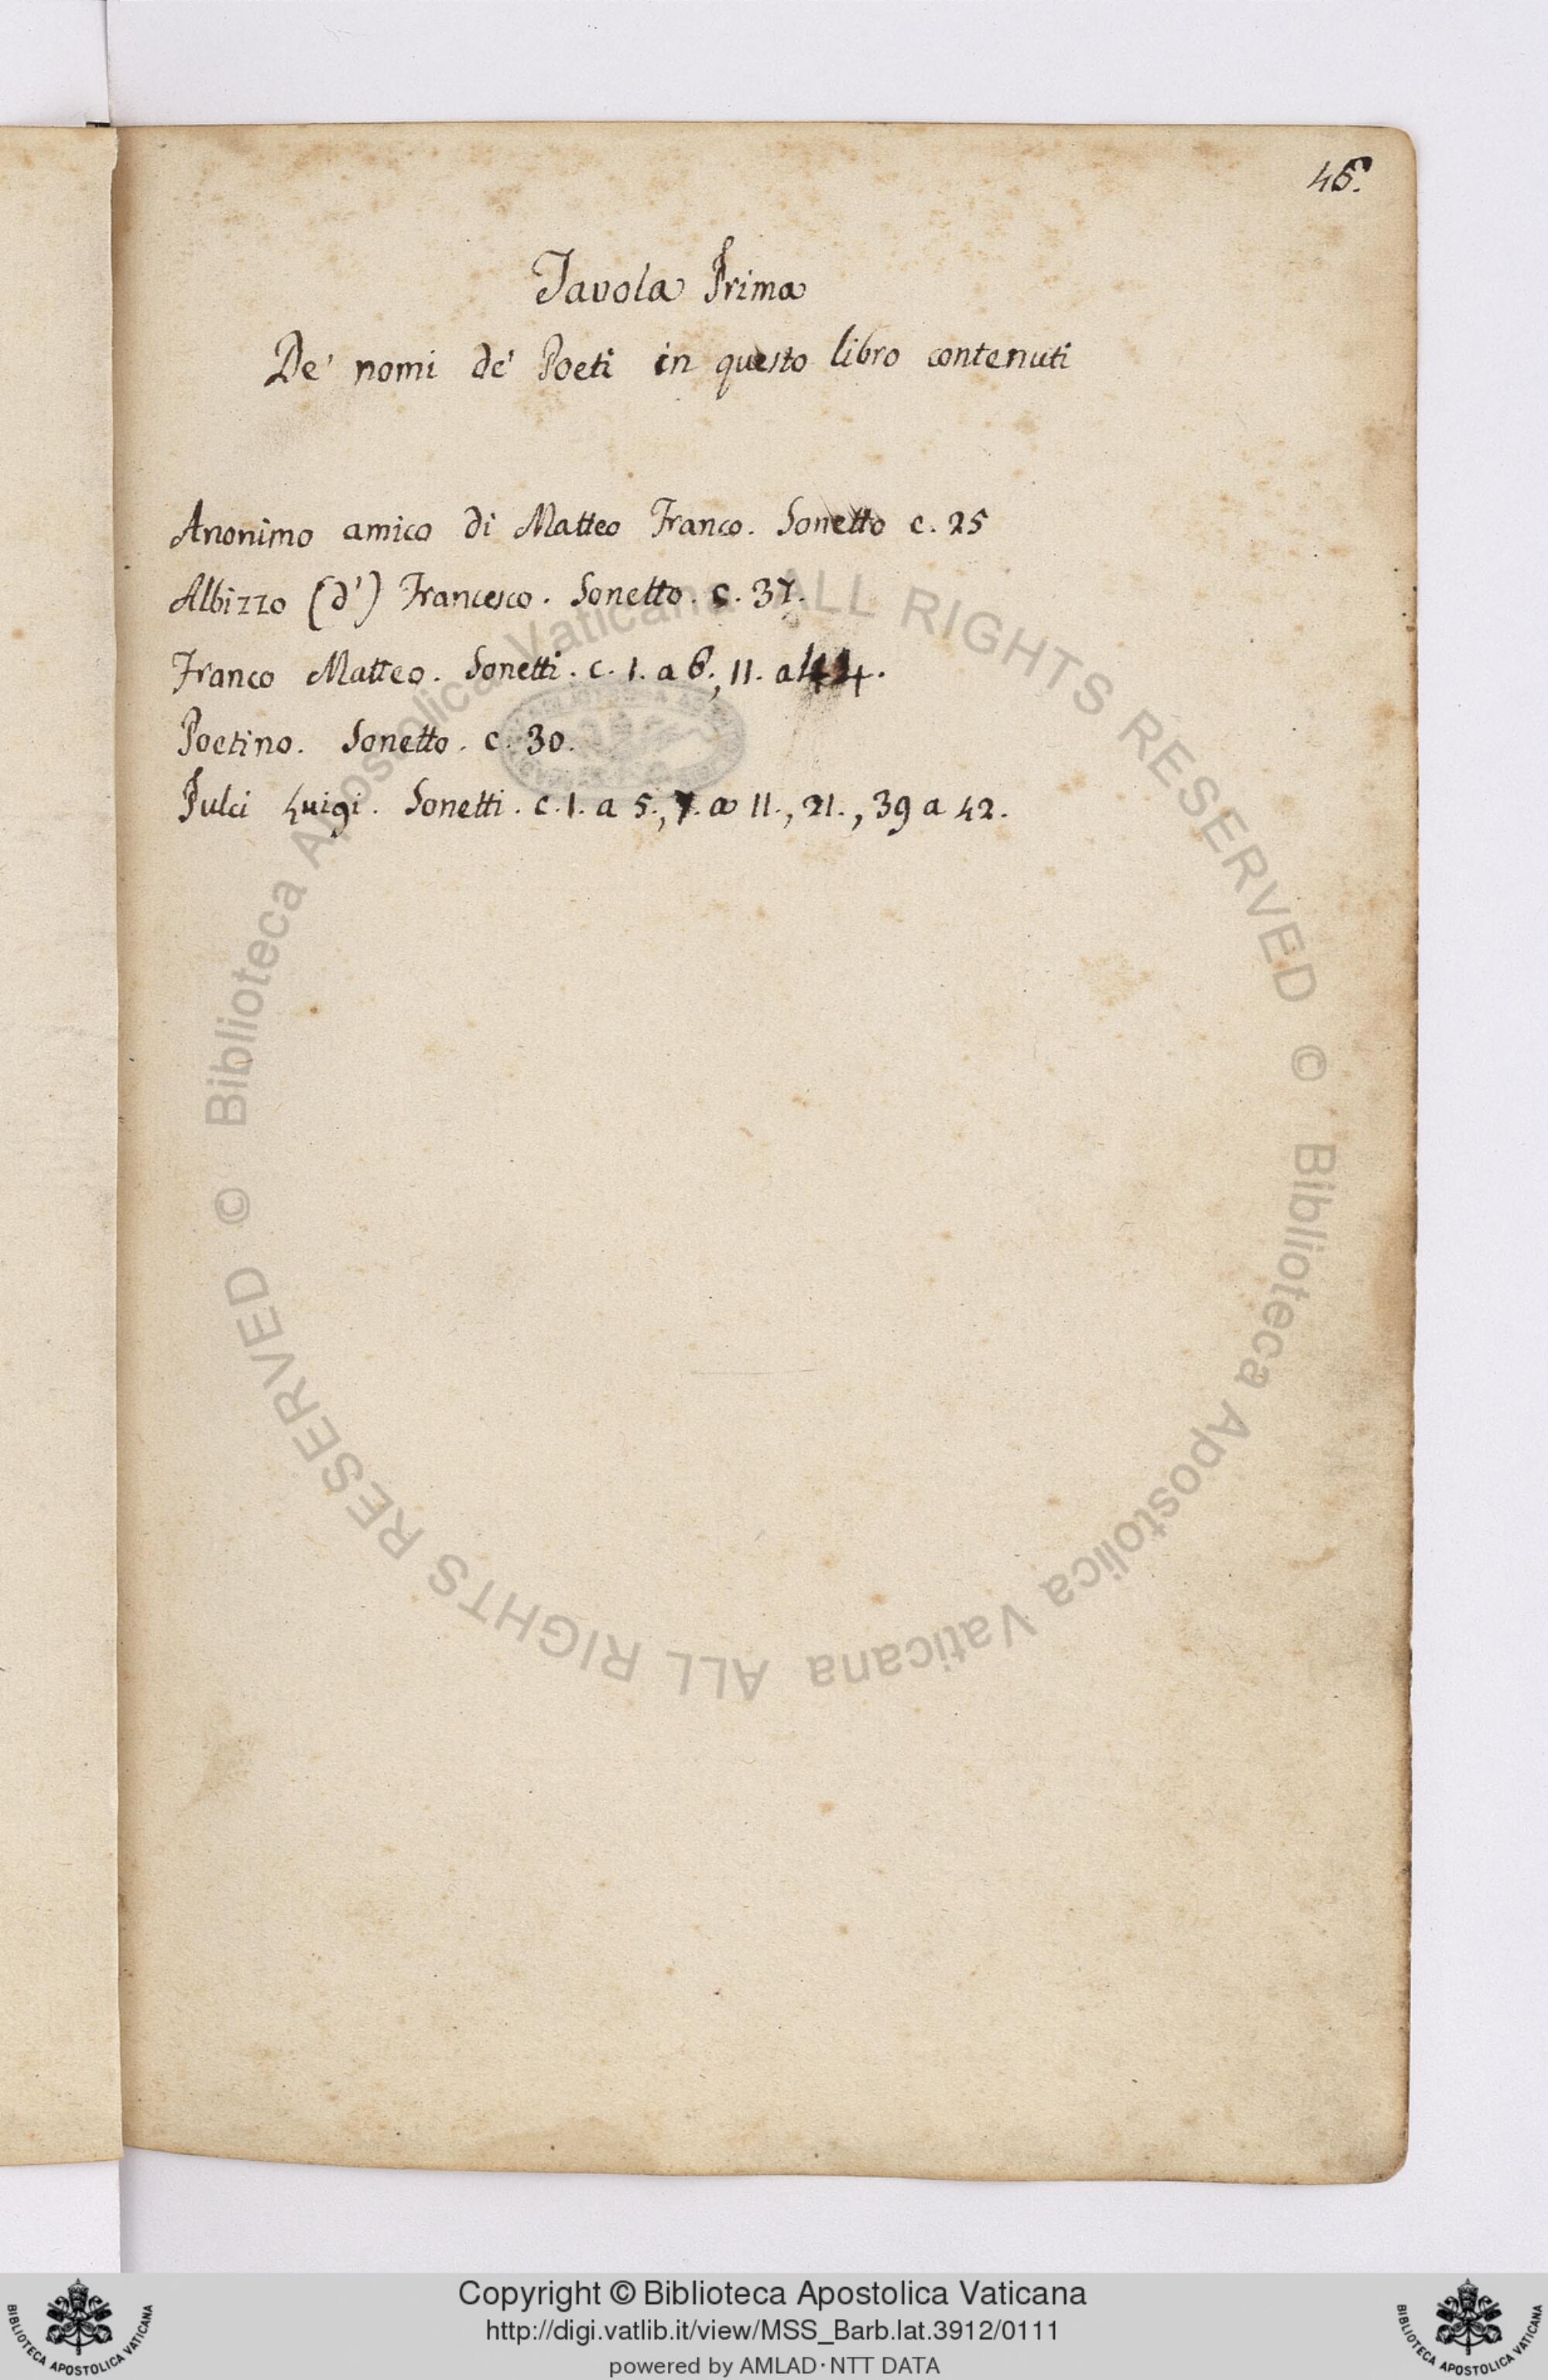 46.
Tavola Prima
De' nomi de' Poeti in questo libro contenuti
Anonimo amico di Matteo Franco. Sonetto c. 25
Albizzo (d') Francesco. Sonetto. c. 37.
Franco Matteo. Sonetti. c. 1. a 6., 11. a 44.
Poetino. Sonetto. c. 30.
Pulci Luigi. Sonetti. c. 1. a 5., 7. a 11., 21., 39 a 42.
© Biblioteca Apostolica Vaticana ALL RIGHTS RESERVED
© Biblioteca Apostolica Vaticana ALL RIGHTS RESERVED
Copyright © Biblioteca Apostolica Vaticana
http://digi.vatlib.it/view/MSS_Barb.lat.3912/0111
powered by AMLAD·NTT DATA
BIBLIOTECA APOSTOLICA VATICANA
BIBLIOTECA APOSTOLICA VATICANA